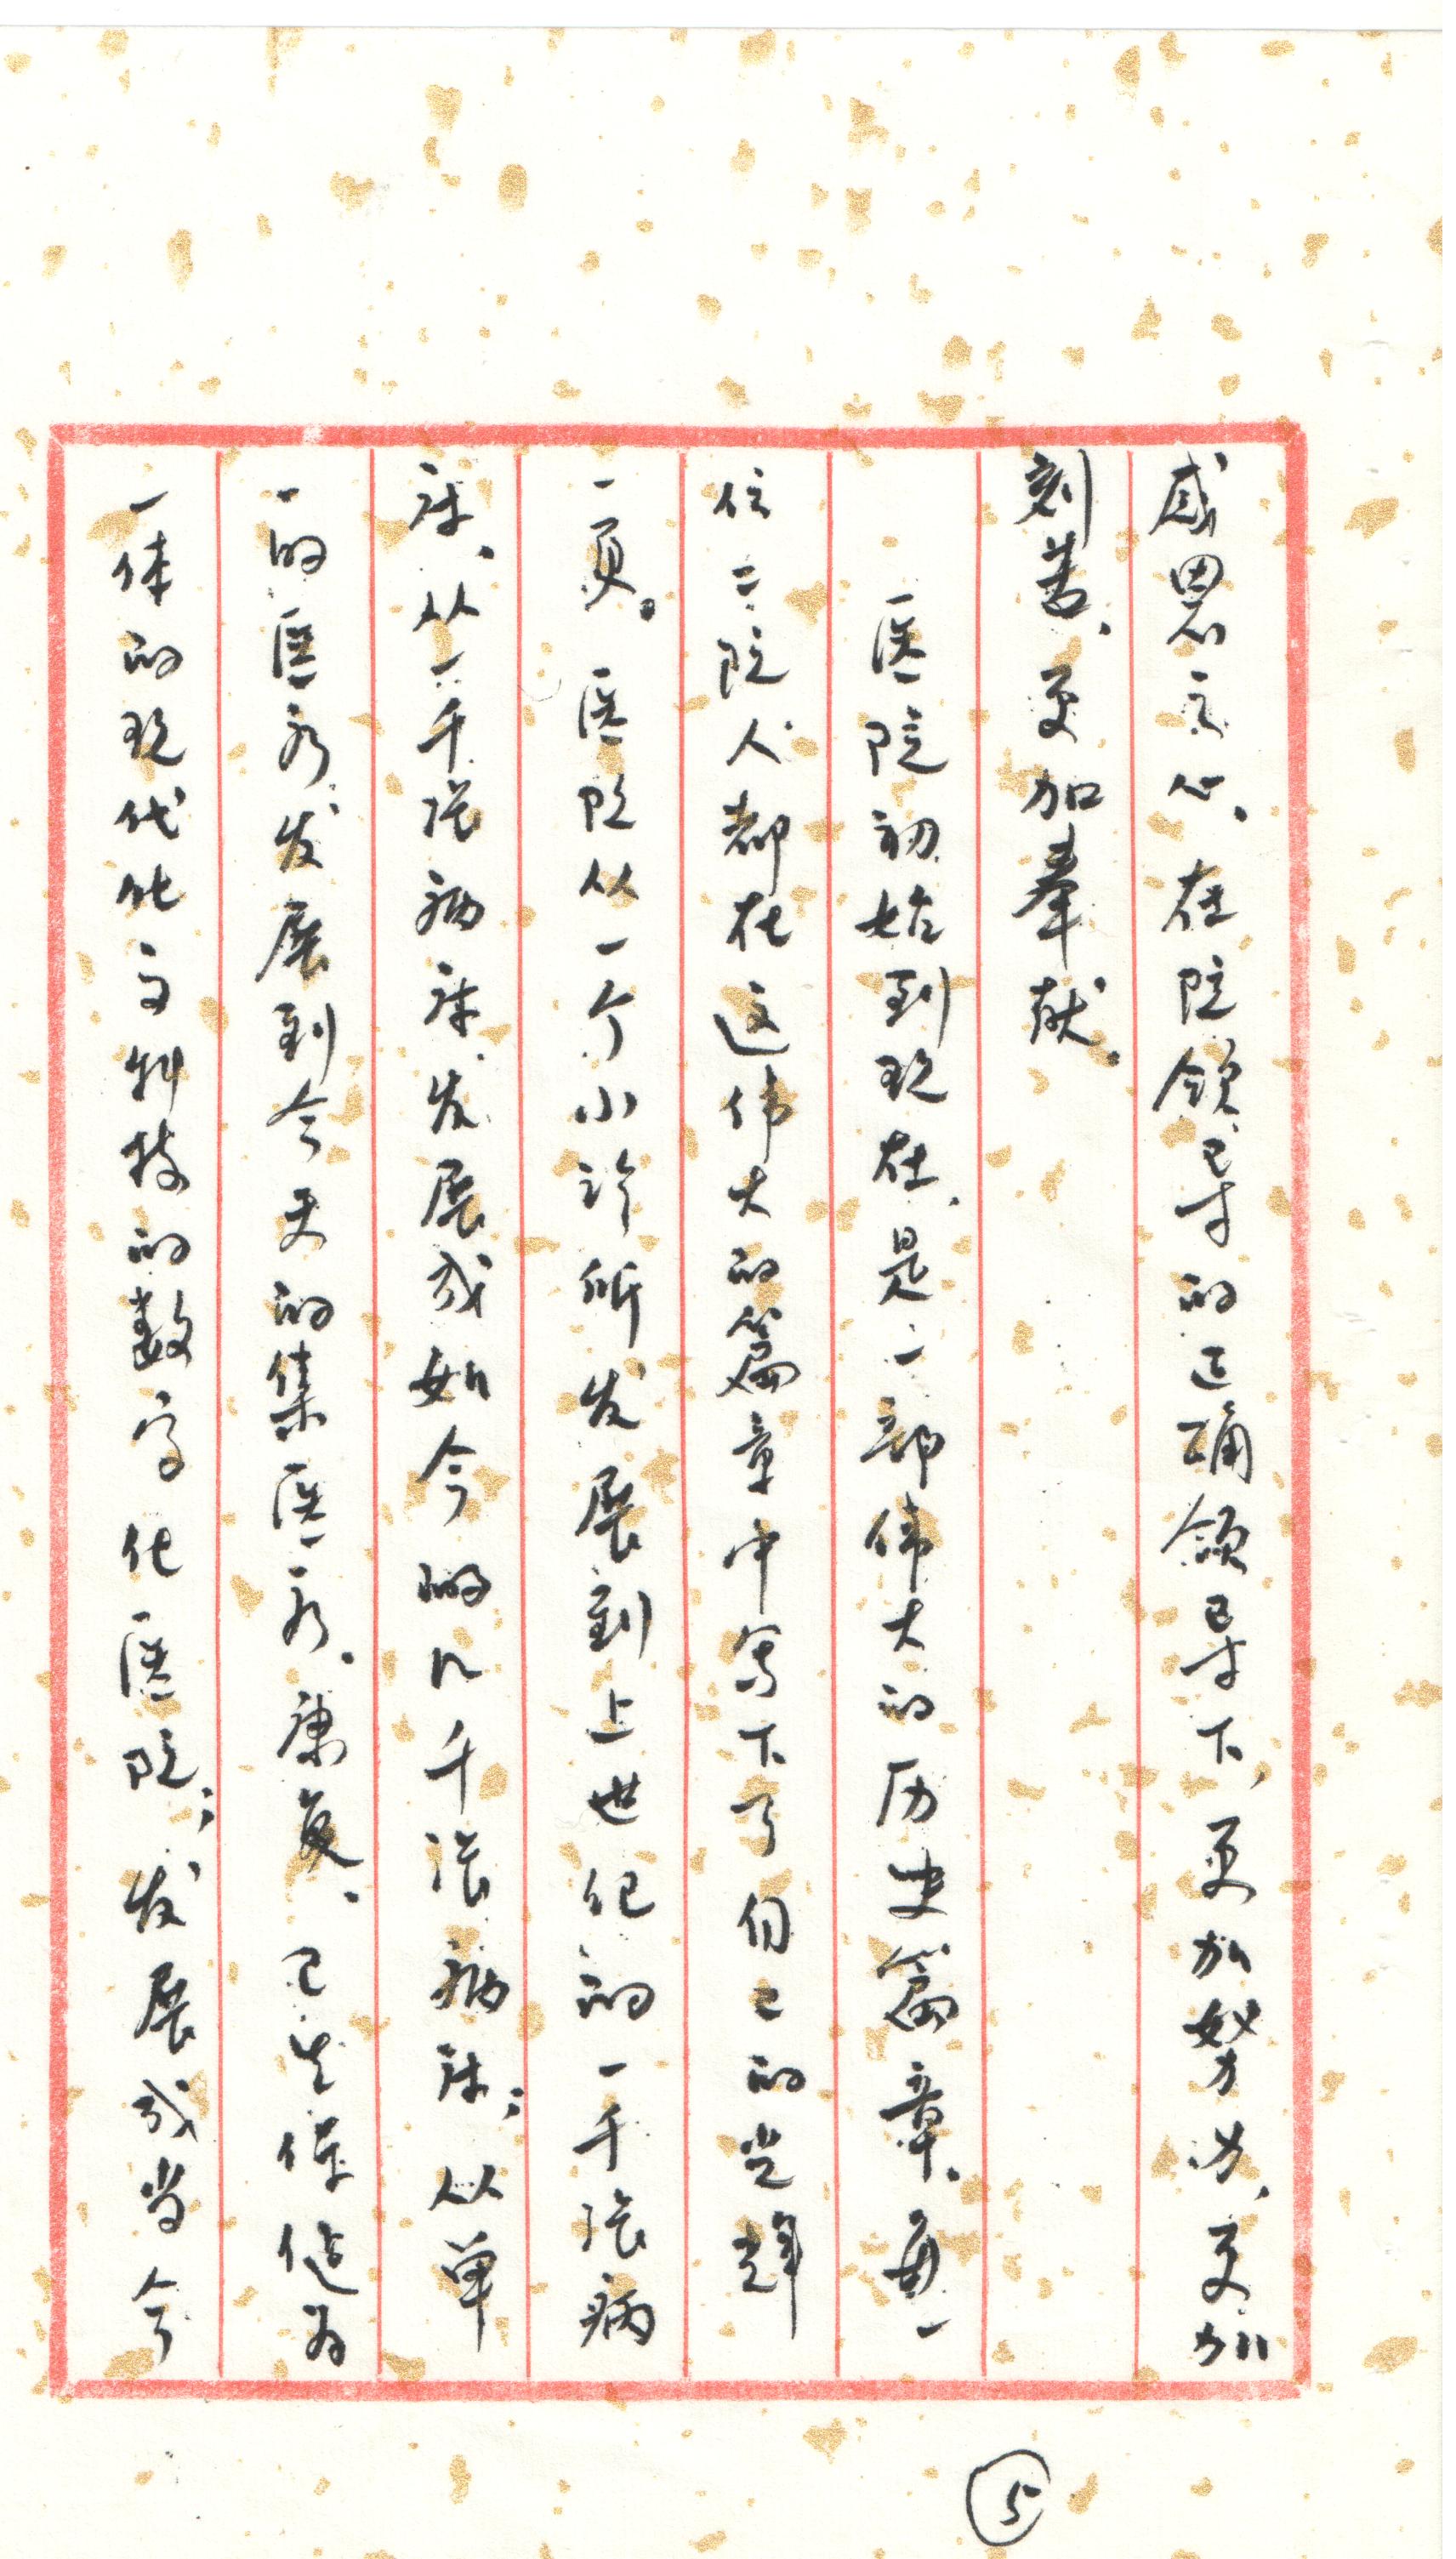 感恩之心、在院领导的正确领导下,更加努力,更加
刻苦、更加奉献。
医院初始到现在,是一部伟大的历史篇章。每一
位二院人都在这伟大的篇章中写下了自己的光辉
一页。医院从一个小诊所发展到上世纪的一千张病
床、从一千张病床发展成如今的几千张病床;从单
一的医疗发展到今天的集医疗。康复。卫生保健为
一体的现代化高科技的数字化医院;发展成当今
5